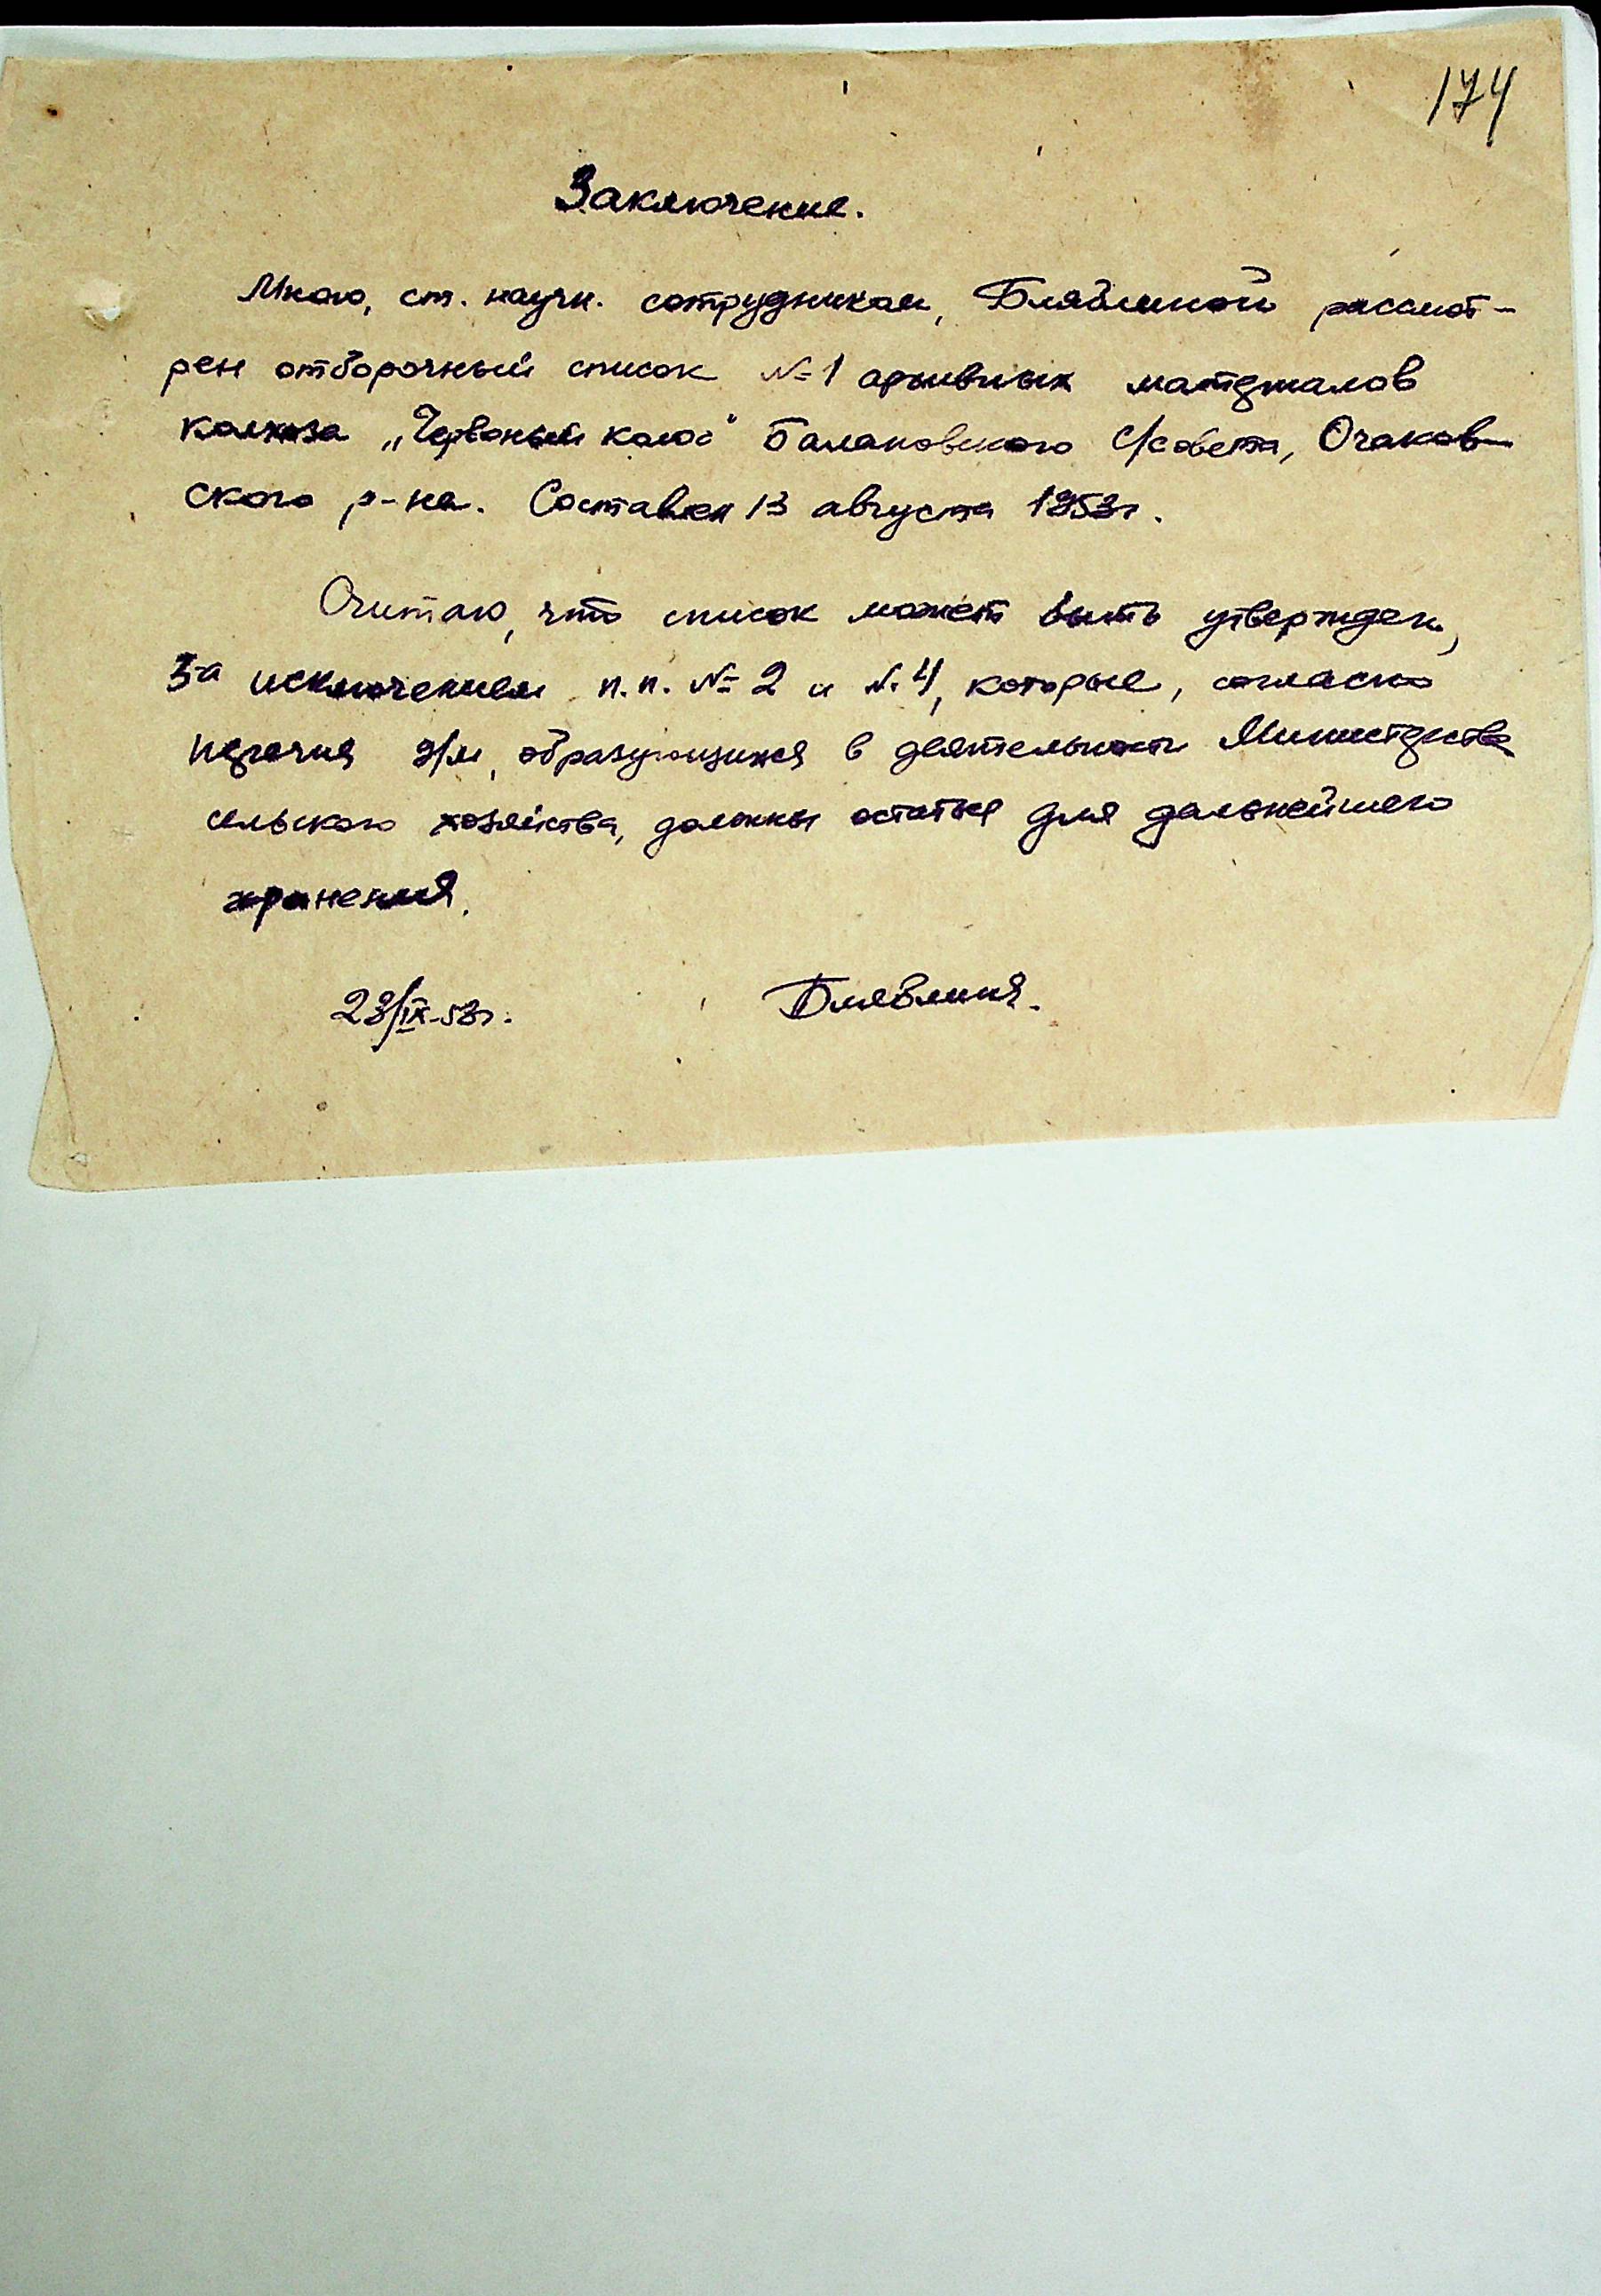 174
Заключение.
Мною, ст. научн. сотрудником, Блявлиной рассмот-
рен отборочный список №1 архивных материалов
колхоза „Червоный колос" Балановского с/совета, Очаков-
ского р-на. Составлен 13 августа 1953г.
Считаю, что список может быть утвержден,
за исключением п.п. №2 и №4, которые, согласно
перечня д/м, образующихся в деятельности Министерства
сельского хозяйства, должны остаться для дальнейшего
хранения.
23/IX-53г. Блявлина.